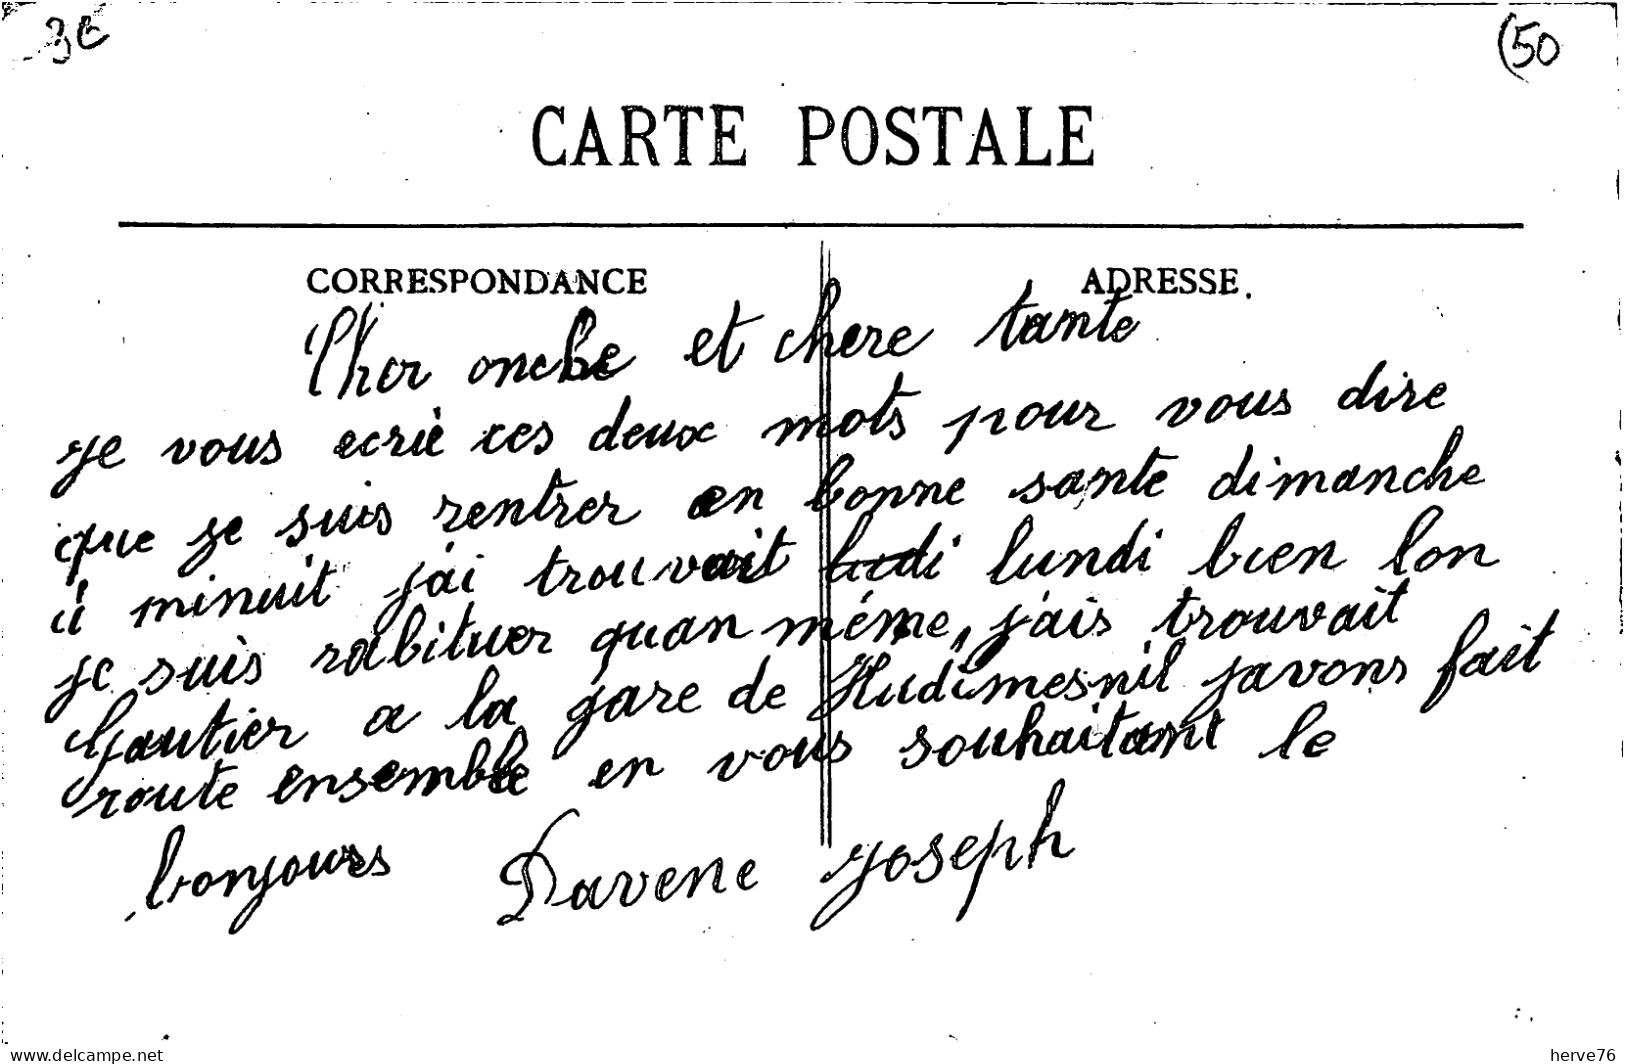 3€
(50
CARTE POSTALE
CORRESPONDANCE
ADRESSE.
Cher oncle et chere tante
je vous ecrie ces deux mots pour vous dire
que je suis rentrer en bonne sante dimanche
à minuit j'ai trouvait ludi lundi bien lon
je suis rabituer quan même, j'ais trouvait
Gautier a la gare de Hudimesnil javons fait
route ensemble en vous souhaitant le
bonjours Davene Joseph
www.delcampe.net
herve76